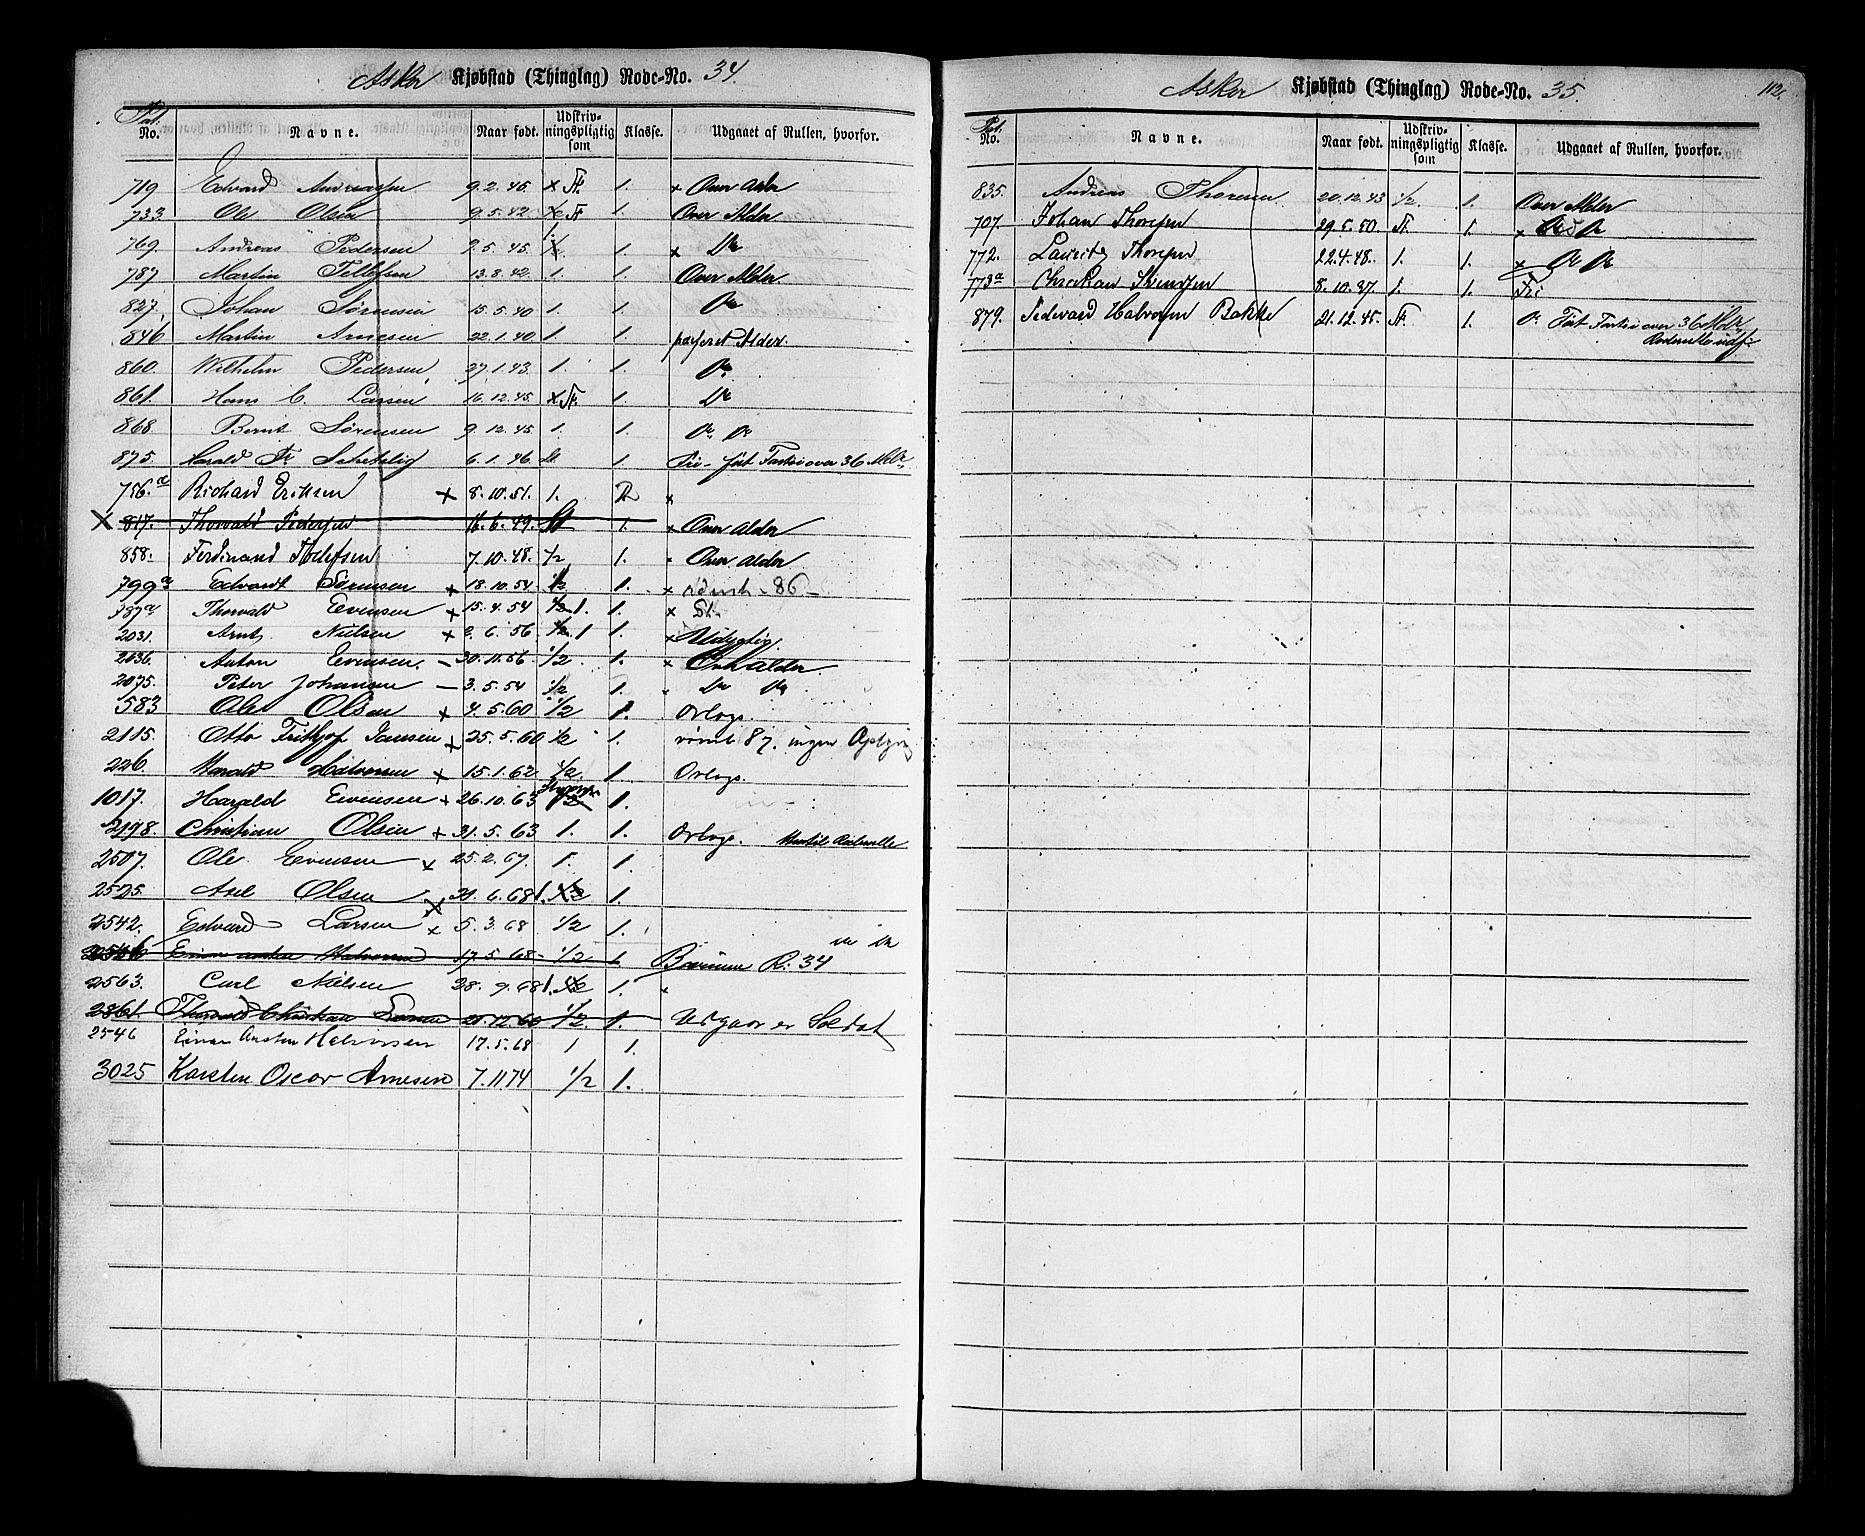 Asker Kjøbstad (Thinglag) Rode-No. 34.
Pat. No. Navne. Naar født. Udskriv-ningspligtig som Klasse. Udgaaet af Rullen, hvorfor.
719 Edvard Andreasen 9.2.45. x St. 1. x Over Alder
733 Ole Olsen 9.5.42 1/2 St 1. Over Alder
769. Andreas Pedersen 9.5.45. 1. x Do
787 Martin Tellefsen 13.8.42. 1. 1. Over Alder
827. Johan Sørensen 15.5.40 1. 1. Do
846 Martin Arnesen 22.1.40 1. 1. passeret Alder.
860. Wilhelm Pedersen 27.1.43. 1. 1. Do
861. Hans C. Larsen 16.12.45. x St. 1. Do
868 Bernt Sørensen 9.12.45 1. 1. Do Do
875. Harald Fr 6.1.46. 1. Fri - ført Fartøi over 36 Mdr,
756.a Richard Eriksen x 8.10.51. 1. x
X 817. Thorvald Pedersen 16.6.49. St 1. x Over Alder
858. Ferdinand 7.10.48. 1/2 1. x Over Alder
799a Edvardt Sørensen x 18.10.54 1/2 1. x rømt - 86 -
787a Thorvald Evensen x 15.4.54 1/2 1. 1. x St.
2031. Arnt Nielsen x 2.6.56 1/2 1 1. x Udygtig
2036. Anton Evensen. - 30.11.56 1/2 1. x Over alder
2075. Peter Johansen - 3.5.54 1/2 1. Do Do
583 Ole Olsen x 4.5.60 1/2 1. Orlogs.
2115. Otto Frithjof Jansen x 25.5.60 1/2 1. rømt 87. ingen
226. Harald Halvorsen x 15.1.62 1/2 1. Orlogs.
1017. Harald Evensen x 26.10.63 1/2 1.
2198. Christian Olsen x 31.5.63 1. 1. Orlogs.
2507. Ole Evensen x 25.2.67. 1. 1.
2525. Axel Olsen x 21.6.68 1. 1/2 1.
2542. Edvard Larsen x 5.3.68 1/2 1.
2546 Einar Halvorsen 17.5.68- 1/2 1 Bærum R. 34
2563. Carl Nielsen 28.9.68 1. 1/2 1.
2861. Thorvald Christian 20.12.60 1/2. 1. Udgaar er Soldat
2546 Einar Anton Halvorsen 17.5.68 1 1.
3025 Karsten Oscar Arnesen 7.11.74 1/2 1.
Asker Kjøbstad (Thinglag) Rode-No. 35. 112.
Pat. No. Navne. Naar født. Udskriv-ningspligtig som Klasse. Udgaaet af Rullen, hvorfor.
835. Andreas Thoresen. 20.12.43 1/2. 1. Over Alder
707. Johan Thoresen 29.5.50 St. 1. x Do Do
772. Lauritz Thoresen 22.4.48. 1. 1. x Do Do
773a Christian Svendsen 8.10.37 1. 1. Fri
879. Sidevard Halvorsen Bakke 21.12.45. St. 1. Do Ført Fartøi over 36 Mdr,